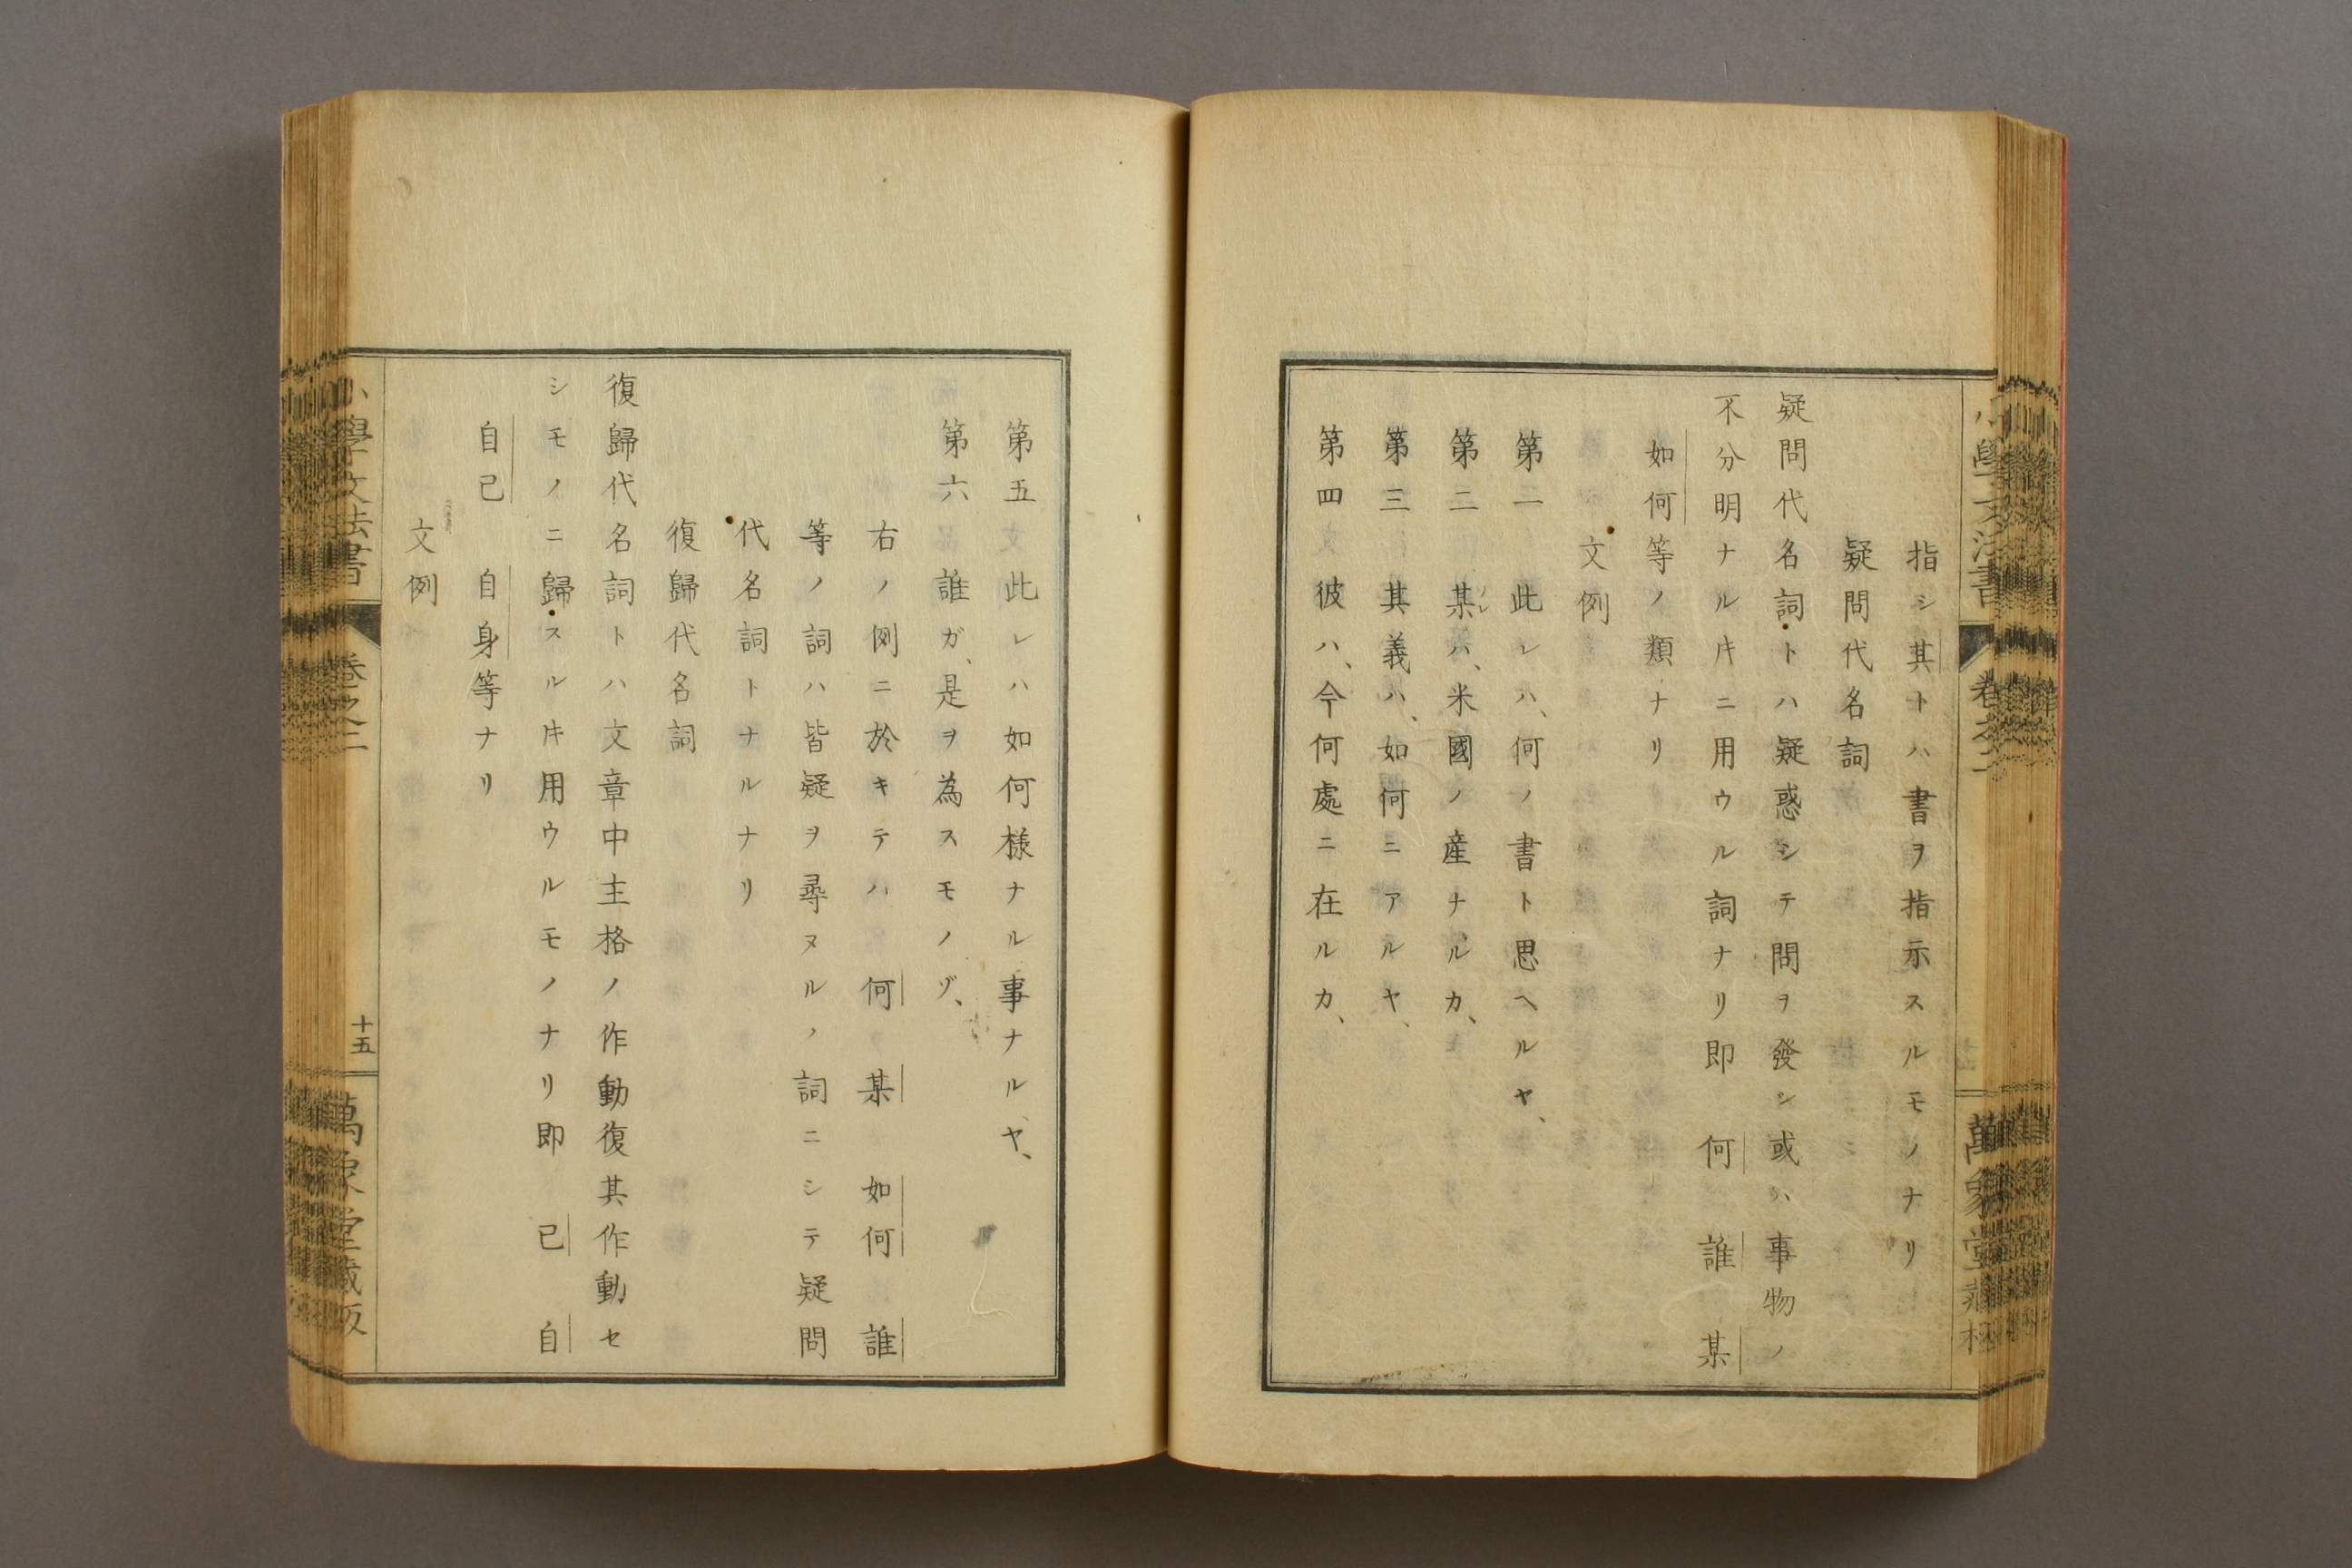 指シ其トハ書ヲ指示スルモノナリ
疑問代名詞
疑問代名詞トハ疑惑シテ問ヲ發シ或ハ事物ノ
不分明ナルキニ用ウル詞ナリ即 何 誰 某
如何等ノ類ナリ
文例
第一 此レハ、何ノ書ト思ヘルヤ、
第二 某ハ、米國ノ産ナルカ、
第三 其義ハ、如何ニアルヤ、
第四 彼ハ、今何處ニ在ルカ、
第五 此レハ如何様ナル事ナルヤ、
第六 誰ガ、是ヲ為スモノゾ、
右ノ例ニ於キテハ 何 某 如何 誰
等ノ詞ハ皆疑ヲ尋ヌルノ詞ニシテ疑問
代名詞トナルナリ
復歸代名詞
復歸代名詞トハ文章中主格ノ作動復其作動セ
シモノニ歸スルキ用ウルモノナリ即 己 自
自己 自身等ナリ
文例
小學文法書 卷之二 十五 萬象堂藏版